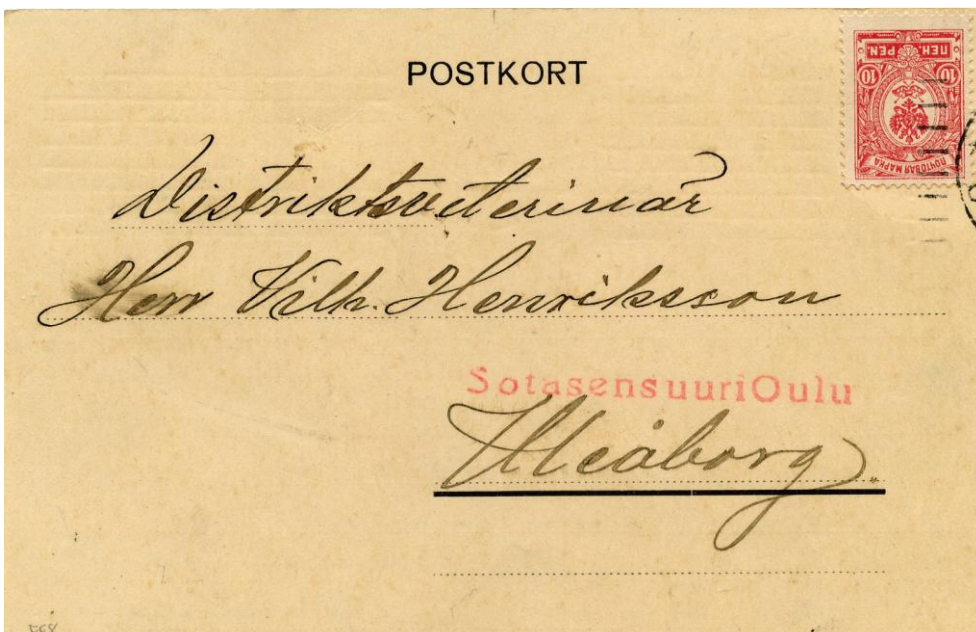 POSTKORT
ПЕН. PEN.
10 10
ПОЧТОВАЯ МАРКА
Distriktsveterinär
Herr Vilh. Henriksson
Sotasensuuri Oulu
Uleåborg.